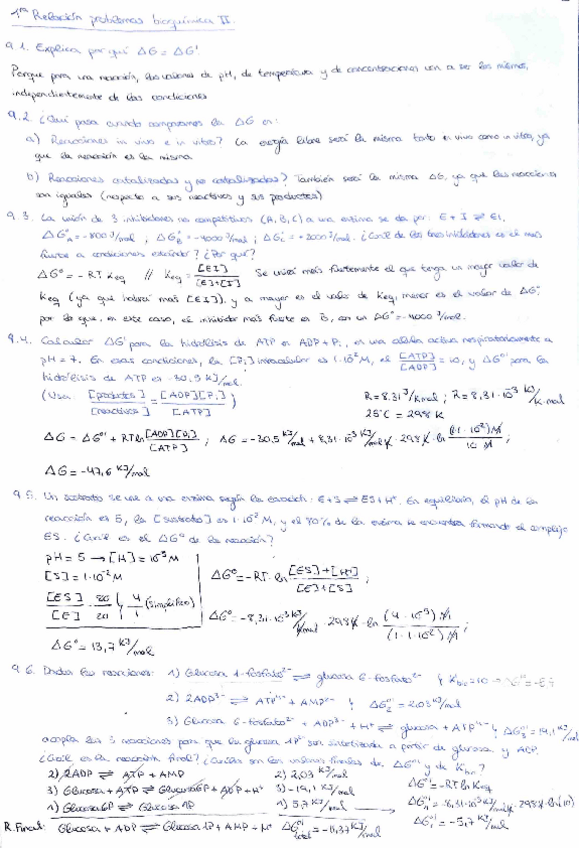 1ª Relación problemas bioquímica II.
9.1. Explica por qué ΔG = ΔG'
Porque para una reacción, los valores de pH, de temperatura y de concentraciones van a ser los mismos,
independientemente de las condiciones
9.2. ¿Qué pasa cuando comparamos la ΔG en:
a) Reacciones in vivo e in vitro? La energía libre será la misma tanto in vivo como in vitro, ya
que la reacción es la misma.
b) Reacciones catalizadas y no catalizadas? También será la misma ΔG, ya que las reacciones
son iguales (respecto a sus reactivos y sus productos)
9.3. La unión de 3 inhibidores no competitivos (A, B, C) a una enzima se da por: E + I ⇌ EI,
¿Cuál de los tres inhibidores es el más
fuerte a condiciones estándar? ¿Por qué?
ΔG° = -RT Keq // Keq = [EI]/[E]+[I] Se unirá más fuertemente el que tenga un mayor valor de
Keq (ya que habrá más [EI]), y a mayor es el valor de Keq, menor es el valor de ΔG°,
por lo que, en este caso, el inhibidor más fuerte es B, con un ΔG° = -4000 J/mol.
9.4. Calcular ΔG' para la hidrólisis de ATP en ADP + Pi, en una célula activa respiratoriamente a
pH = 7. En esas condiciones, la [Pi] intracelular es 1·10⁻² M, el [ATP]/[ADP] = 10, y ΔG°' para la
hidrólisis de ATP es -30,5 KJ/mol.
(Usa: [productos]/[reactivos] = [ADP][Pi]/[ATP]) R = 8,31 J/K·mol; R = 8,31·10⁻³ KJ/K·mol
25°C = 298 K
ΔG = ΔG°' + RT ln [ADP][Pi]/[ATP]; ΔG = -30,5 KJ/mol + 8,31·10⁻³ KJ/mol K · 298 K · ln (1·1·10⁻²) M/10 M;
ΔG = -47,6 KJ/mol
9.5. Un sustrato se une a una enzima según la ecuación: E + S ⇌ ES + H⁺. En equilibrio, el pH de la
reacción es 5, la [sustrato] es 1·10⁻² M, y el 80% de la enzima se encuentra formando el complejo
ES. ¿Cuál es el ΔG° de la reacción?
pH = 5 → [H] = 10⁻⁵ M
[S] = 1·10⁻² M
ΔG° = -RT·ln [ES]+[H⁺]/[E]+[S];
[ES]/[E] 80/20 4/1 (simplifico)
ΔG° = -8,31·10⁻³ KJ/K mol · 298 K · ln (4·10⁻⁵) M/(1·1·10⁻²) M;
ΔG° = 13,7 KJ/mol
9.6. Dadas las reacciones: 1) Glucosa 1-fosfato²⁻ ⇌ glucosa 6-fosfato²⁻
2) 2ADP³⁻ ⇌ ATP⁴⁻ + AMP²⁻ ΔG°' = 2,03 KJ/mol
3) Glucosa 6-fosfato²⁻ + ADP³⁻ + H⁺ ⇌ glucosa + ATP⁴⁻
acopla las 3 reacciones para que la glucosa 1P²⁻ sea sintetizada a partir de glucosa y ADP.
¿Cuál es la reacción final? ¿Cuáles son los valores finales de ΔG°' y de
2) 2ADP ⇌ ATP + AMP 2) 2,03 KJ/mol
3) Glucosa + ATP ⇌ Glucosa 6P + ADP + H⁺ 3) -19,1 KJ/mol ΔG°' = -RT ln Keq
1) Glucosa 6P ⇌ Glucosa 1P 1) 5,7 KJ/mol
ΔG°' = -5,7 KJ/mol
R. Final: Glucosa + ADP ⇌ Glucosa 1P + AMP + H⁺ ΔG°' total = -11,37 KJ/mol